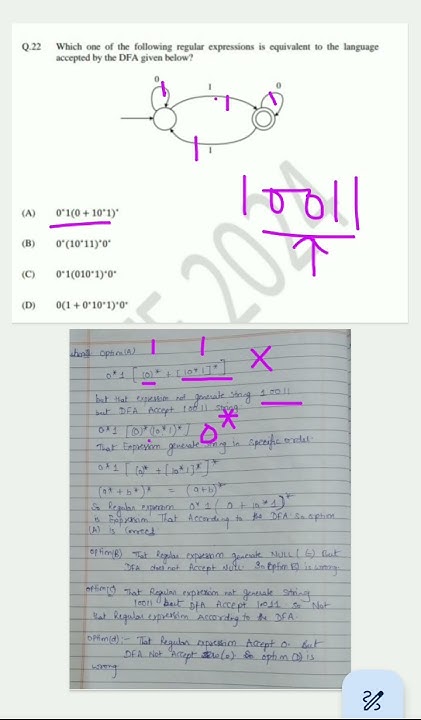 Q.22 Which one of the following regular expressions is equivalent to the language
accepted by the DFA given below?
0
1
0
1
1
1
1
1
(A) 0*1(0 + 10*1)*
10011
(B) 0*(10*11)*0*
(C) 0*1(010*1)*0*
(D) 0(1 + 0*10*1)*0*
2024
Option(A)
1 1
0*1 [(0)* + [10*1]*] X
but that expression not generate string 10011
but DFA Accept 10011 string
0*1 [(0)*(10*1)*] 0*
That Expression generate string in specific order
0*1 [(0)* + [10*1]*]*
(a* + b*)* = (a+b)*
So Regular expression 0*1(0 + 10*1)*
is Expression That According to the DFA So option
(A) is correct
option(B) That Regular expression generate NULL (ε) But
DFA does not Accept Null. So option (B) is wrong
option(C) That Regular expression not generate string
10011 but DFA Accept 10011 So Not
that Regular expression According to the DFA.
option(d):- That Regular expression Accept 0. But
DFA Not Accept zero(0) So option (D) is
wrong